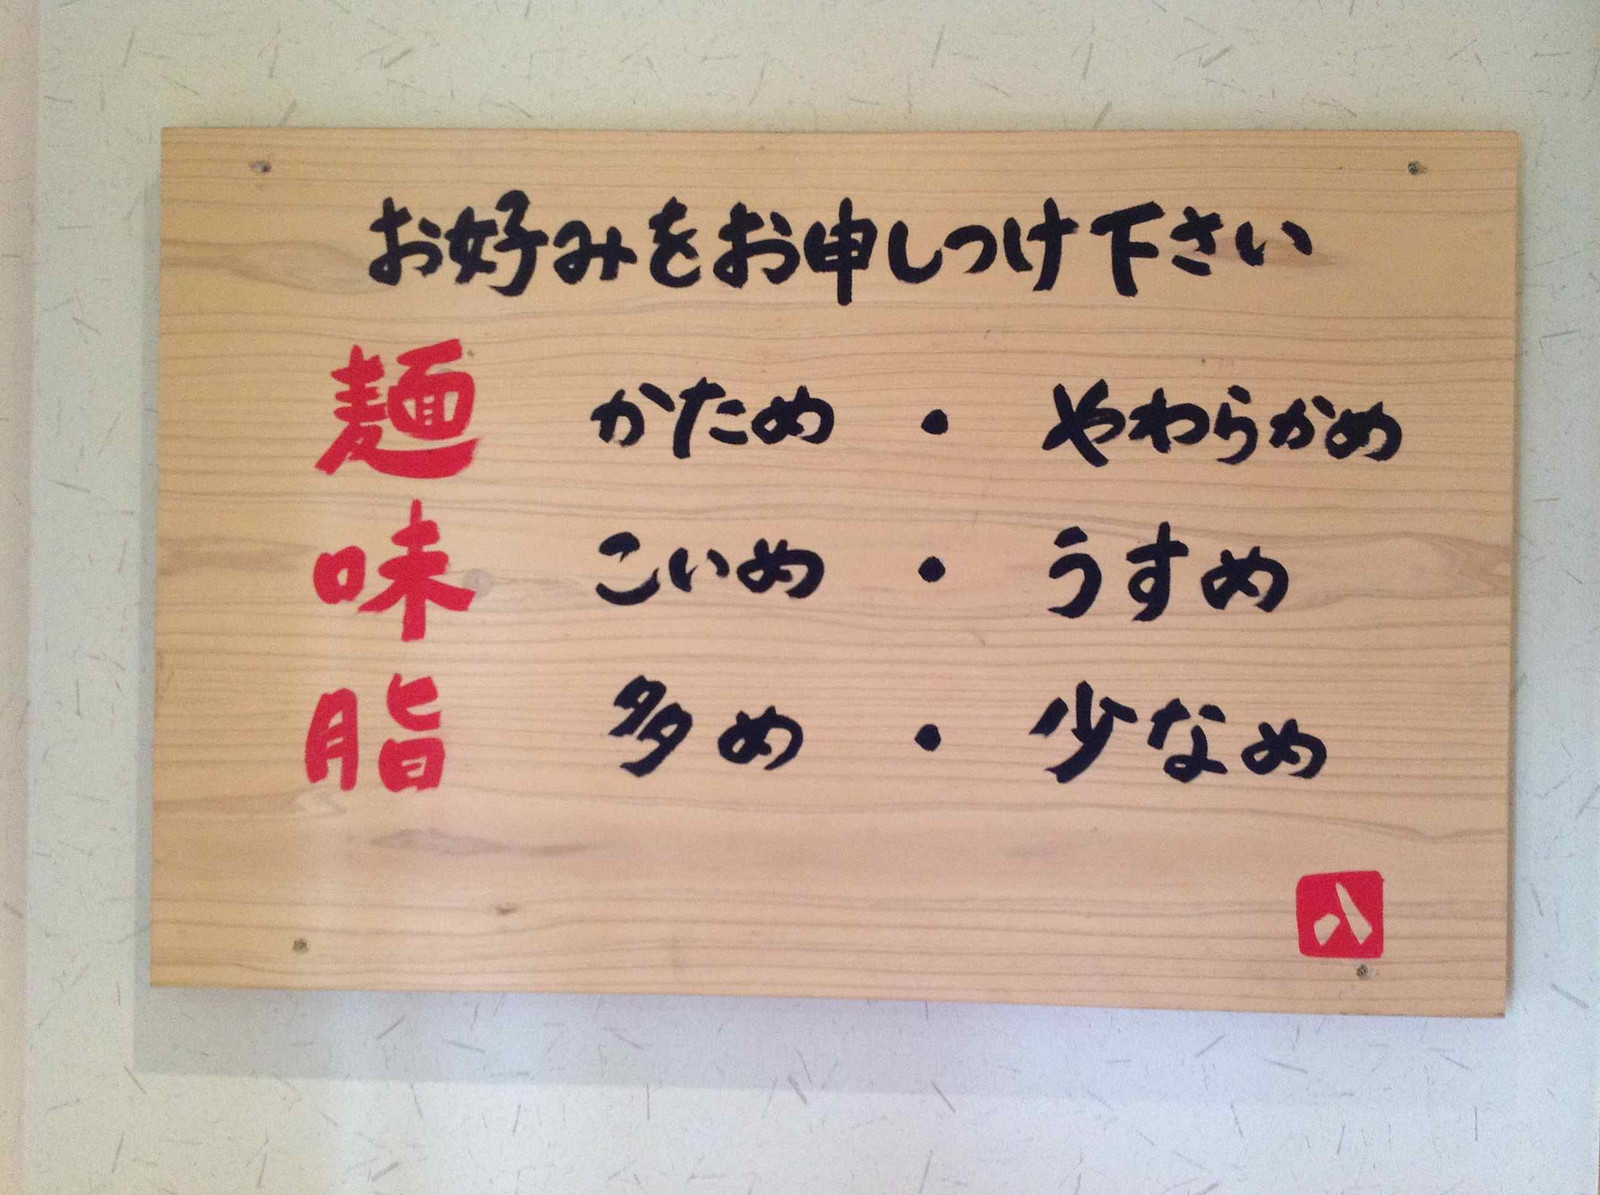 お好みをお申しつけ下さい
麺 かため ・ やわらかめ
味 こいめ ・ うすめ
脂 多め ・ 少なめ
八